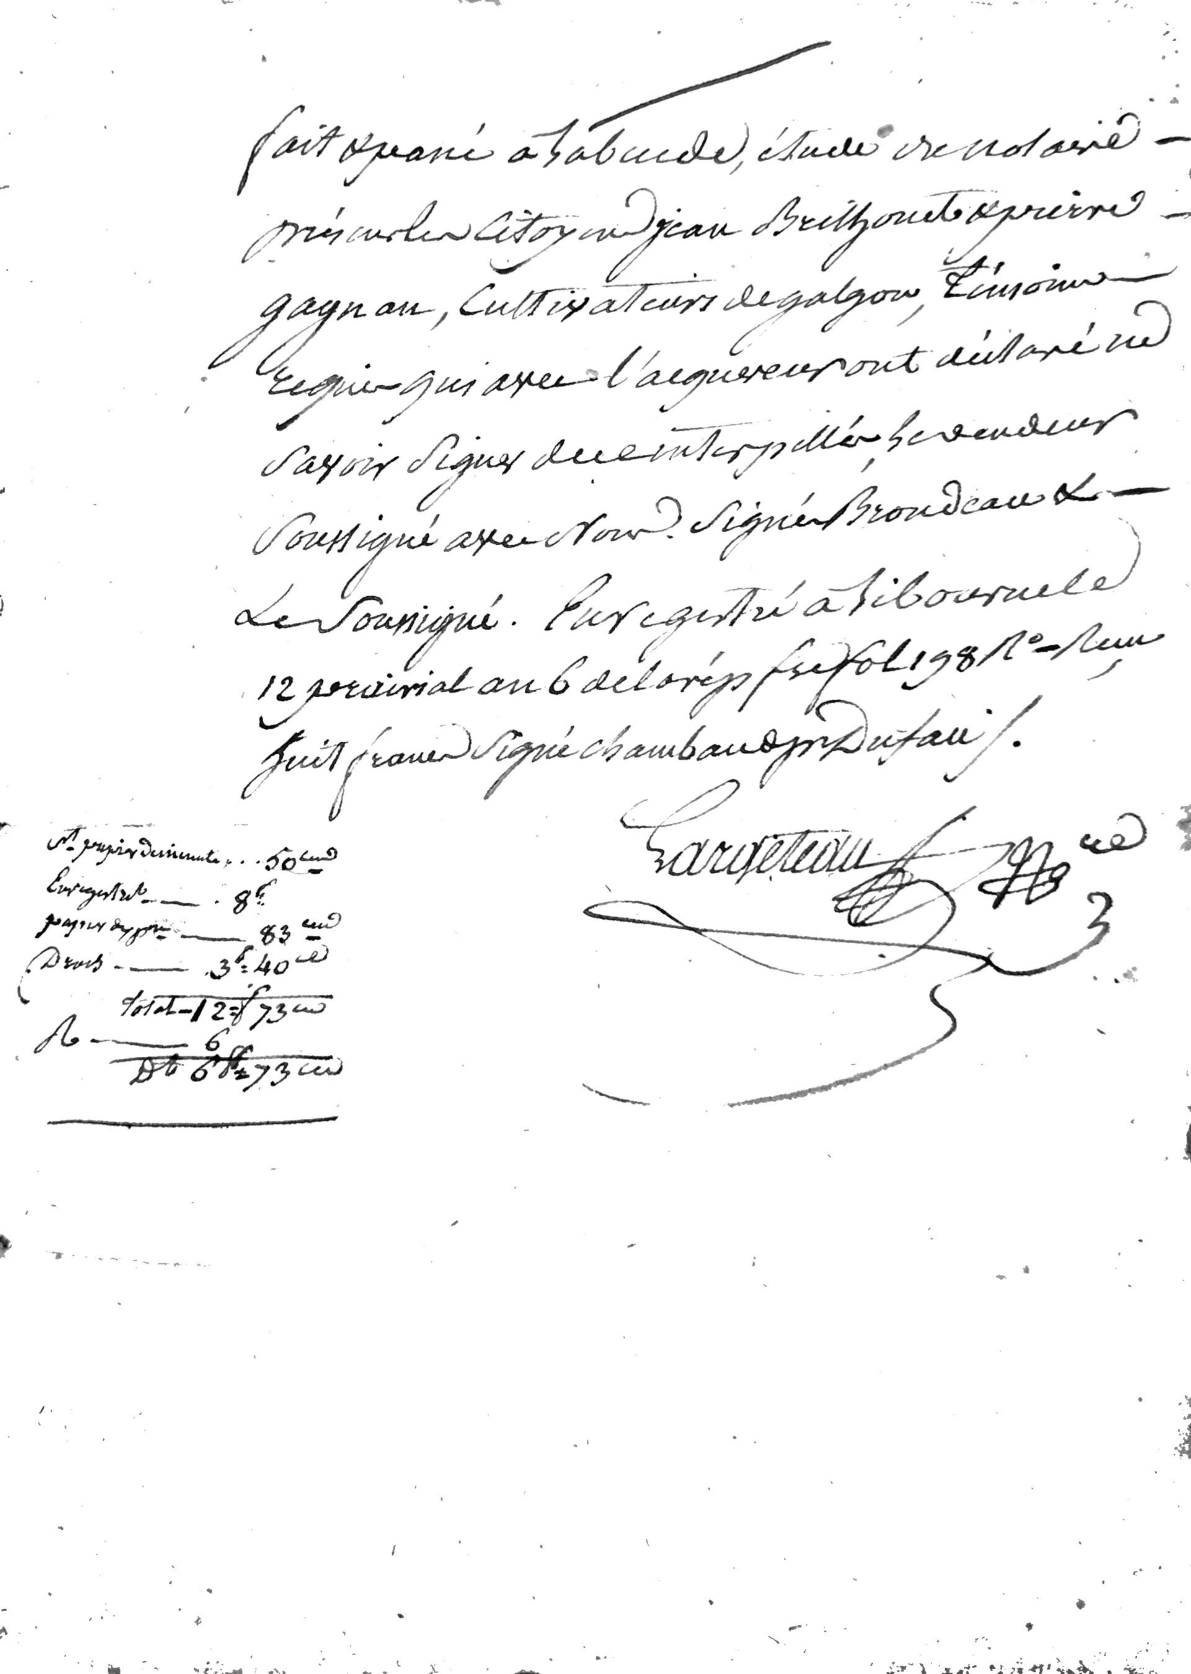 fait & passé à Labuede, étude de notaire
présents les Citoyens jean Brilhouet & pierre
gagnan, Cultivateurs de galgon, témoins
requis qui avec l'acquereur ont déclaré ne
Savoir Signer de ce interpellés, Le vendeur
Soussigné avec Nous. Signé Brondeau &
Le Soussigné. Enregistré à Libourne le
12 prairial an 6 de la rép. fse fol 198 Ro Reçu
huit francs Signé chambaud pr Dufau /.
Largeteau Nre
Mt papier de minute .. 50 cmes
Enregistrt. — 8 f
papier dexpon — 83 cmes
Droits — 3 f = 40 ces
Total — 12 = f 73 ces
R — 6
Dt 6 f = 73 ces